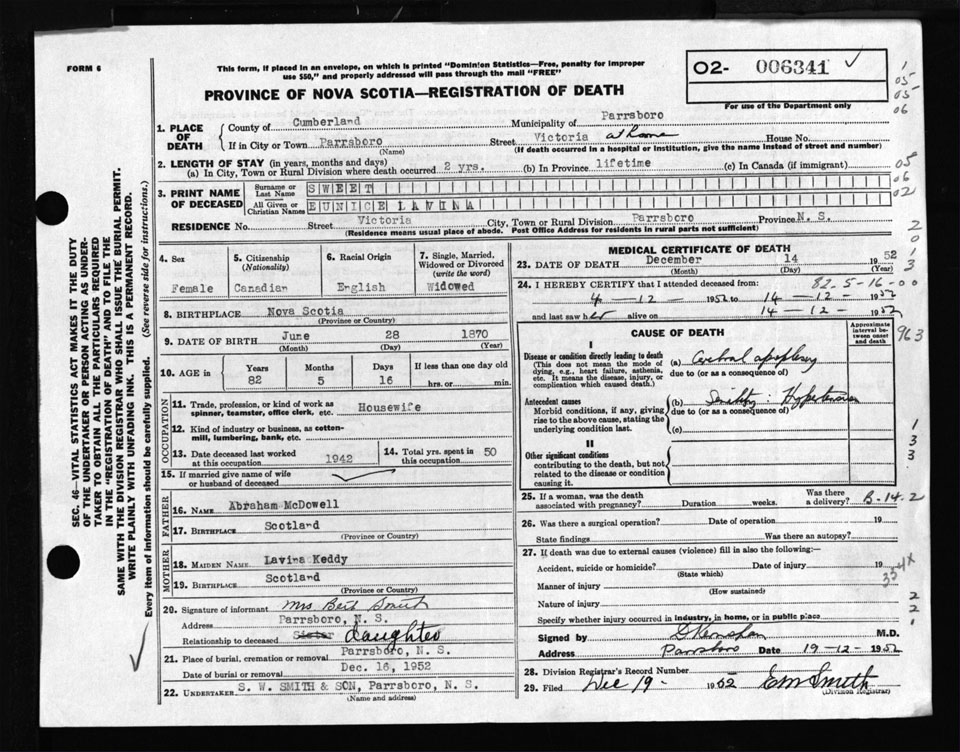 FORM 6
This form, if placed in an envelope, on which is printed "Dominion Statistics—Free, penalty for improper
use $50," and properly addressed will pass through the mail "FREE"
PROVINCE OF NOVA SCOTIA—REGISTRATION OF DEATH
02- 006341
For use of the Department only
1. PLACE OF DEATH
County of Cumberland Municipality of Parrsboro
If in City or Town Parrsboro Street Victoria at Home House No.
(Name) (If death occurred in a hospital or institution, give the name instead of street and number)
2. LENGTH OF STAY (in years, months and days)
(a) In City, Town or Rural Division where death occurred 2 yrs. (b) In Province lifetime (c) In Canada (if immigrant)
3. PRINT NAME OF DECEASED
Surname or Last Name SWEET
All Given or Christian Names EUNICE LAVINA
RESIDENCE No. Street Victoria City, Town or Rural Division Parrsboro Province N. S.
(Residence means usual place of abode. Post Office Address for residents in rural parts not sufficient)
4. Sex
Female
5. Citizenship (Nationality)
Canadian
6. Racial Origin
English
7. Single, Married, Widowed or Divorced (write the word)
Widowed
8. BIRTHPLACE Nova Scotia
(Province or Country)
9. DATE OF BIRTH June 28 1870
(Month) (Day) (Year)
10. AGE in Years Months Days If less than one day old
82 5 16 hrs. or min.
OCCUPATION
11. Trade, profession, or kind of work as
spinner, teamster, office clerk, etc. Housewife
12. Kind of industry or business, as cotton-
mill, lumbering, bank, etc.
13. Date deceased last worked
at this occupation 1942
14. Total yrs. spent in
this occupation 50
15. If married give name of wife
or husband of deceased
FATHER
16. Name Abraham McDowell
17. Birthplace Scotland
(Province or Country)
MOTHER
18. MAIDEN NAME Lavina Keddy
19. Birthplace Scotland
(Province or Country)
20. Signature of informant Mrs Bert Smith
Address Parrsboro, N. S.
Relationship to deceased Sister daughter
21. Place of burial, cremation or removal Parrsboro, N. S.
Date of burial or removal Dec. 16, 1952
22. UNDERTAKER S. W. SMITH & SON, Parrsboro, N. S.
(Name and address)
MEDICAL CERTIFICATE OF DEATH
23. DATE OF DEATH December 14 1952
(Month) (Day) (Year)
24. I HEREBY CERTIFY that I attended deceased from: 82-5-16-00
4-12-1952 to 14-12-1952
and last saw her alive on 14-12-1952
CAUSE OF DEATH
Approximate interval between onset and death
I
Disease or condition directly leading to death
(This does not mean the mode of
dying, e.g., heart failure, asthenia,
etc. It means the disease, injury, or
complication which caused death.)
(a) Cerebral apoplexy
due to (or as a consequence of)
Antecedent causes
Morbid conditions, if any, giving
rise to the above cause, stating the
underlying condition last.
(b) Senility: Hypertension
due to (or as a consequence of)
(c)
II
Other significant conditions
contributing to the death, but not
related to the disease or condition
causing it.
25. If a woman, was the death
associated with pregnancy? Duration weeks. Was there a delivery? B-14.2
26. Was there a surgical operation? Date of operation 19
State findings Was there an autopsy?
27. If death was due to external causes (violence) fill in also the following:—
Accident, suicide or homicide? Date of injury 19
(State which)
Manner of injury
(How sustained)
Nature of injury
Specify whether injury occurred in industry, in home, or in public place
Signed by M.D.
Address Parrsboro Date 19-12-1952
28. Division Registrar's Record Number
29. Filed Dec 19- 1952 EM Smith
(Division Registrar)
SEC. 46—VITAL STATISTICS ACT MAKES IT THE DUTY
OF THE UNDERTAKER OR PERSON ACTING AS UNDER-
TAKER TO OBTAIN ALL THE PARTICULARS REQUIRED
IN THE "REGISTRATION OF DEATH" AND TO FILE THE
SAME WITH THE DIVISION REGISTRAR WHO SHALL ISSUE THE BURIAL PERMIT.
WRITE PLAINLY WITH UNFADING INK. THIS IS A PERMANENT RECORD.
Every item of information should be carefully supplied. (See reverse side for instructions.)
1
05
05
06
05
06
02
2
0
1
3
963
1
3
3
354X
2
2
1